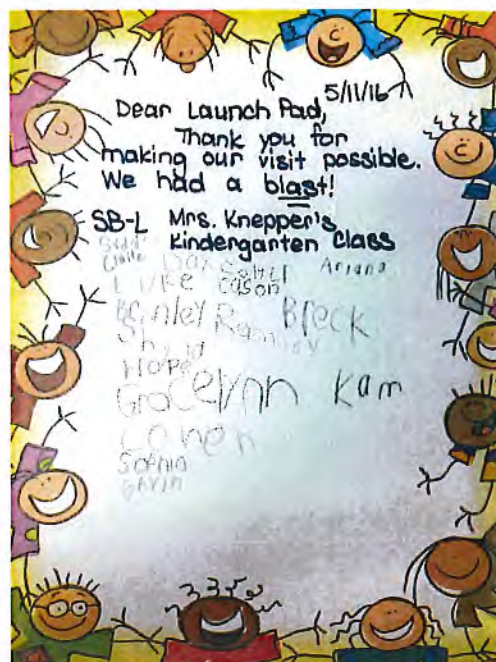 5/11/16
Dear Launch Pad,
Thank you for
making our visit possible.
We had a blast!
SB-L Mrs. Knepper's
Kindergarten Class
Ariana
Luke Cason
Brinley Breck
Hope
Gracelynn Kam
Cohen
Sophia
Gavin